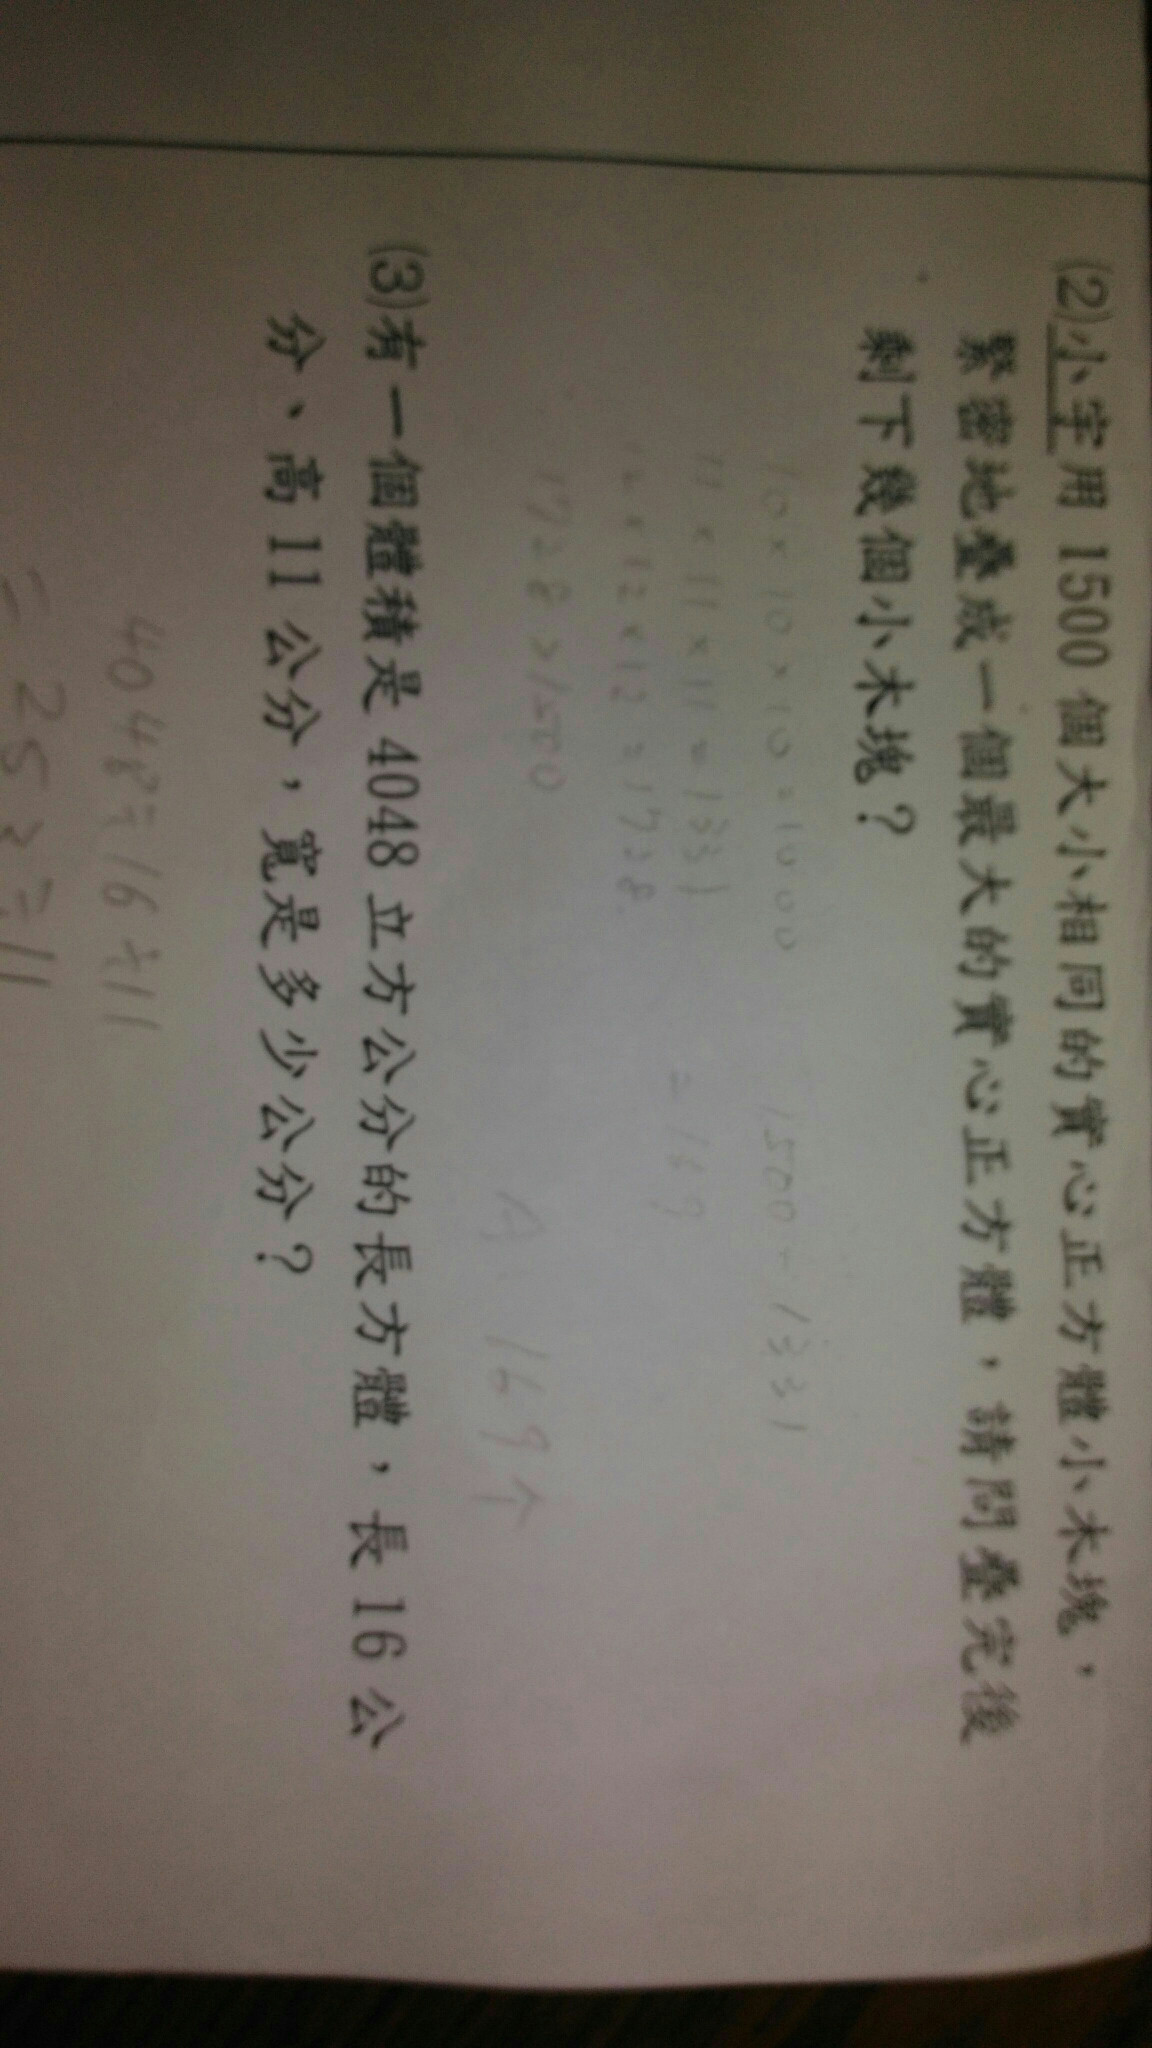 (2)小宇用 1500 個大小相同的實心正方體小木塊，
緊密地疊成一個最大的實心正方體，請問疊完後
剩下幾個小木塊？
10×10×10=1000
11×11×11=1331
12×12×12=1728
1728>1500
1500-1331
=169
A: 169个
(3)有一個體積是 4048 立方公分的長方體，長 16 公
分、高 11 公分，寬是多少公分？
4048÷16÷11
=253÷11